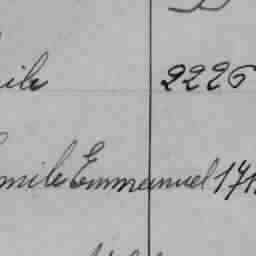 ile 2226
mile Emmanuel 171